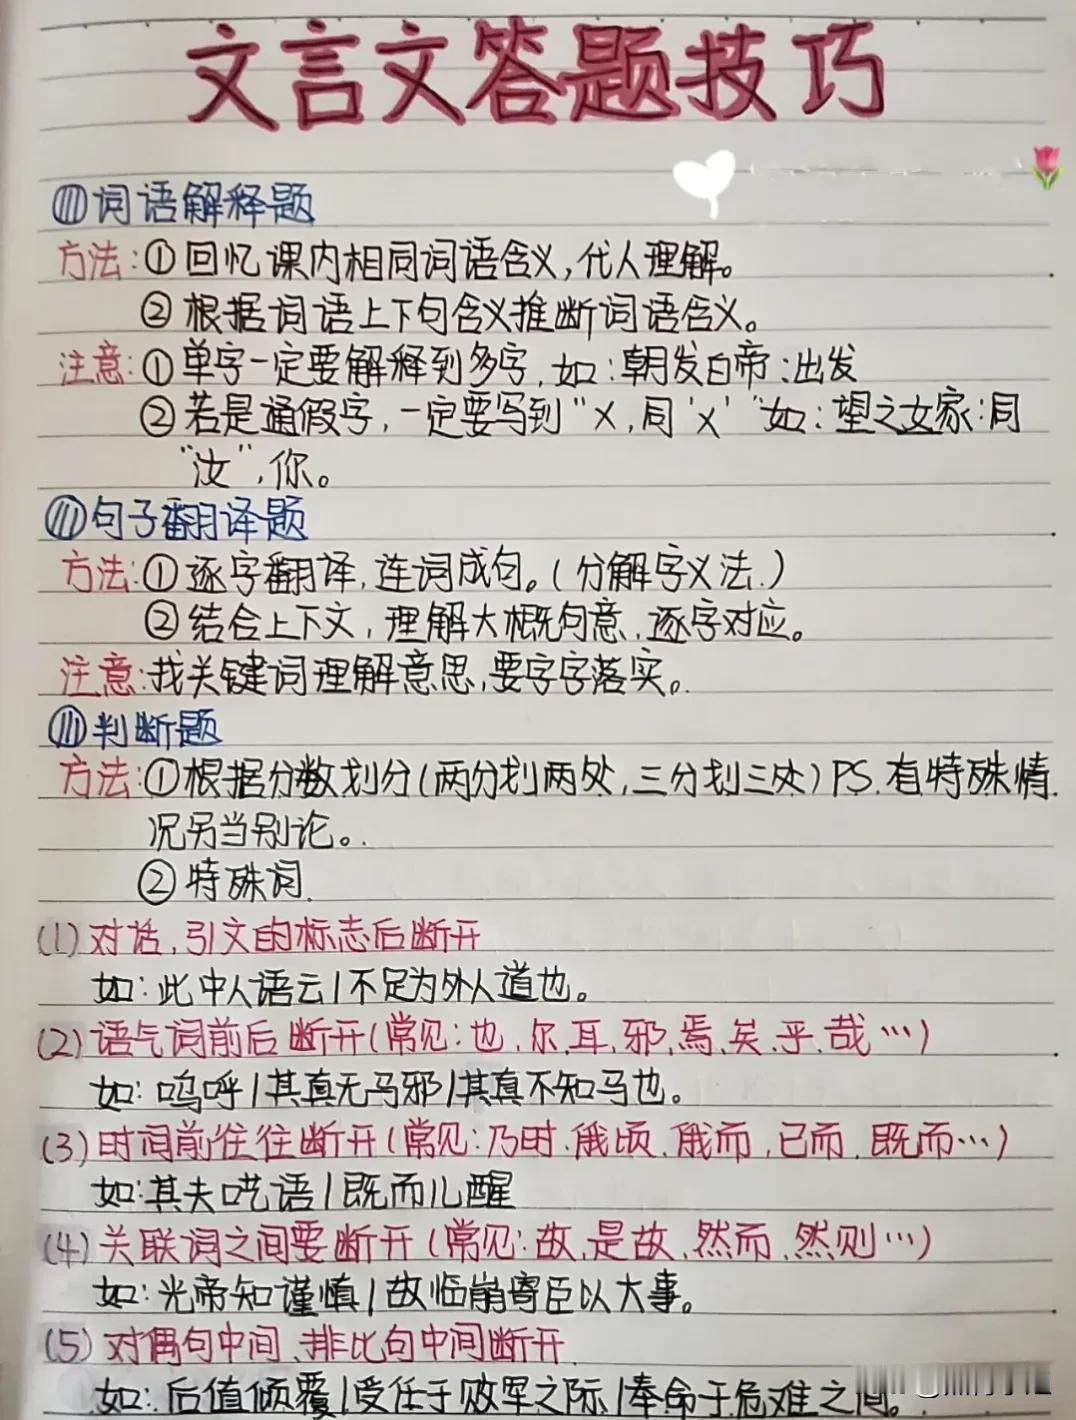 文言文答题技巧
词语解释题
方法:①回忆课内相同词语含义,代人理解。
②根据词语上下句含义推断词语含义。
注意:①单字一定要解释到多字,如:朝发白帝:出发
②若是通假字,一定要写到"X,同'X'"如:望之女家:同
"汝",你。
句子翻译题
方法:①逐字翻译,连词成句。(分解字义法.)
②结合上下文,理解大概句意,逐字对应。
注意:找关键词理解意思,要字字落实。
判断题
方法:①根据分数划分(两分划两处,三分划三处)PS.有特殊情
况另当别论。
②特殊词.
(1)对话,引文的标志后断开
如:此中人语云/不足为外人道也。
(2)语气词前后断开(常见:也、尔、耳、邪、焉、矣、乎、哉…)
如:呜呼/其真无马邪/其真不知马也。
(3)时间前往往断开(常见:乃时、俄顷、俄而、已而、既而…)
如:其夫呓语/既而儿醒
(4)关联词之间要断开(常见:故、是故、然而、然则…)
如:光帝知谨慎/故临崩寄臣以大事。
(5)对偶句中间、排比句中间断开
如:后值倾覆/受任于败军之际/奉命于危难之间。